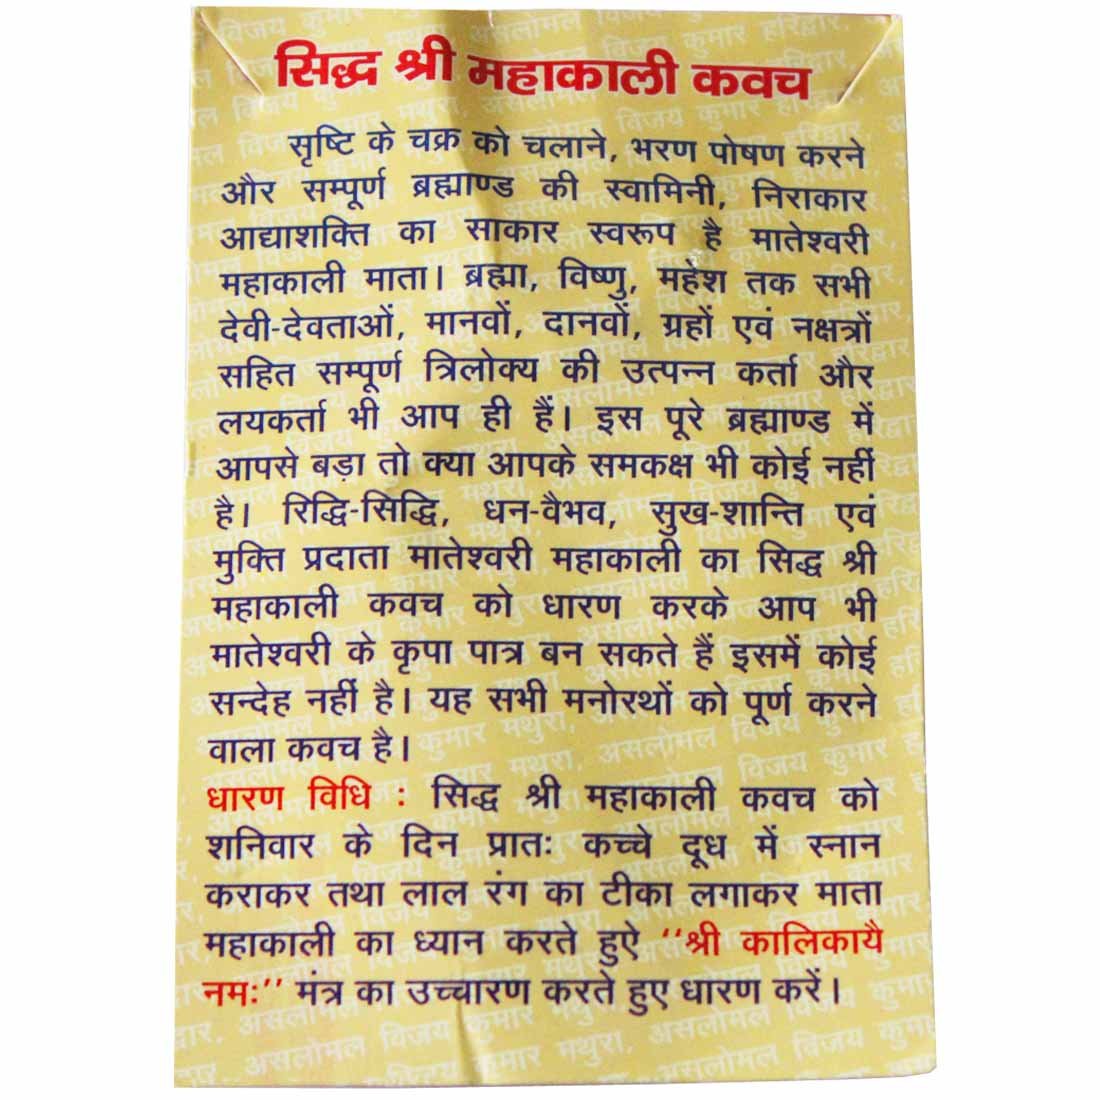 सिद्ध श्री महाकाली कवच
सृष्टि के चक्र को चलाने, भरण पोषण करने
और सम्पूर्ण ब्रह्माण्ड की स्वामिनी, निराकार
आद्याशक्ति का साकार स्वरूप है मातेश्वरी
महाकाली माता। ब्रह्मा, विष्णु, महेश तक सभी
देवी-देवताओं, मानवों, दानवों, ग्रहों एवं नक्षत्रों
सहित सम्पूर्ण त्रिलोक्य की उत्पन्न कर्ता और
लयकर्ता भी आप ही हैं। इस पूरे ब्रह्माण्ड में
आपसे बड़ा तो क्या आपके समकक्ष भी कोई नहीं
है। रिद्धि-सिद्धि, धन-वैभव, सुख-शान्ति एवं
मुक्ति प्रदाता मातेश्वरी महाकाली का सिद्ध श्री
महाकाली कवच को धारण करके आप भी
मातेश्वरी के कृपा पात्र बन सकते हैं इसमें कोई
सन्देह नहीं है। यह सभी मनोरथों को पूर्ण करने
वाला कवच है।
धारण विधि : सिद्ध श्री महाकाली कवच को
शनिवार के दिन प्रातः कच्चे दूध में स्नान
कराकर तथा लाल रंग का टीका लगाकर माता
महाकाली का ध्यान करते हुऐ ''श्री कालिकायै
नमः'' मंत्र का उच्चारण करते हुए धारण करें।